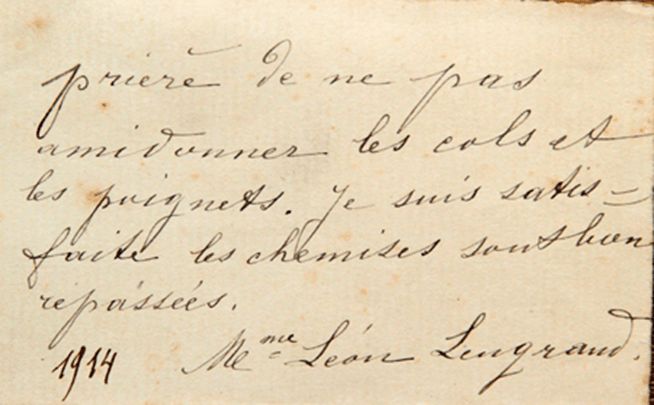 prière de ne pas
amidonner les cols et
les poignets. Je suis satis=
faite les chemises sont bien
repassées.
1914 Mme Léon Lengrand.